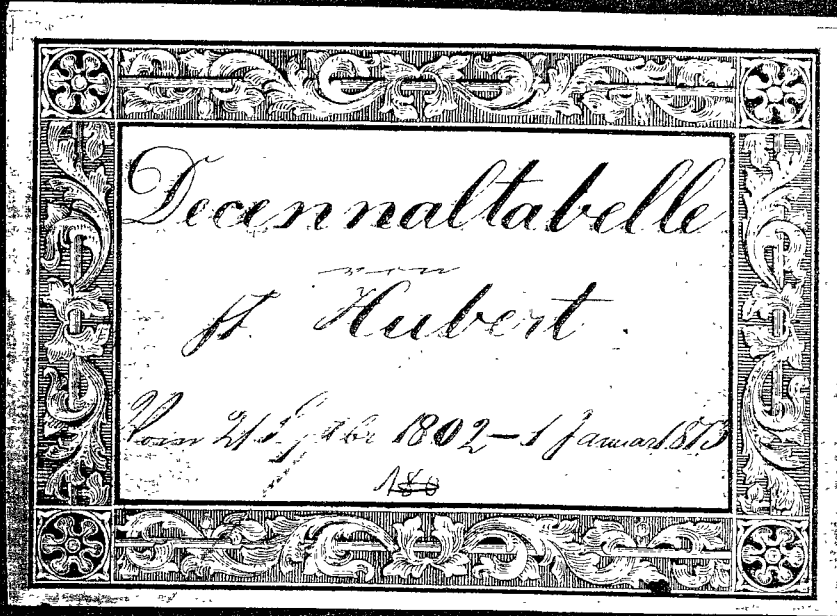 Decennaltabelle
von
St. Hubert.
Vom 21 Septbr 1802 – 1 Januar 1813
180